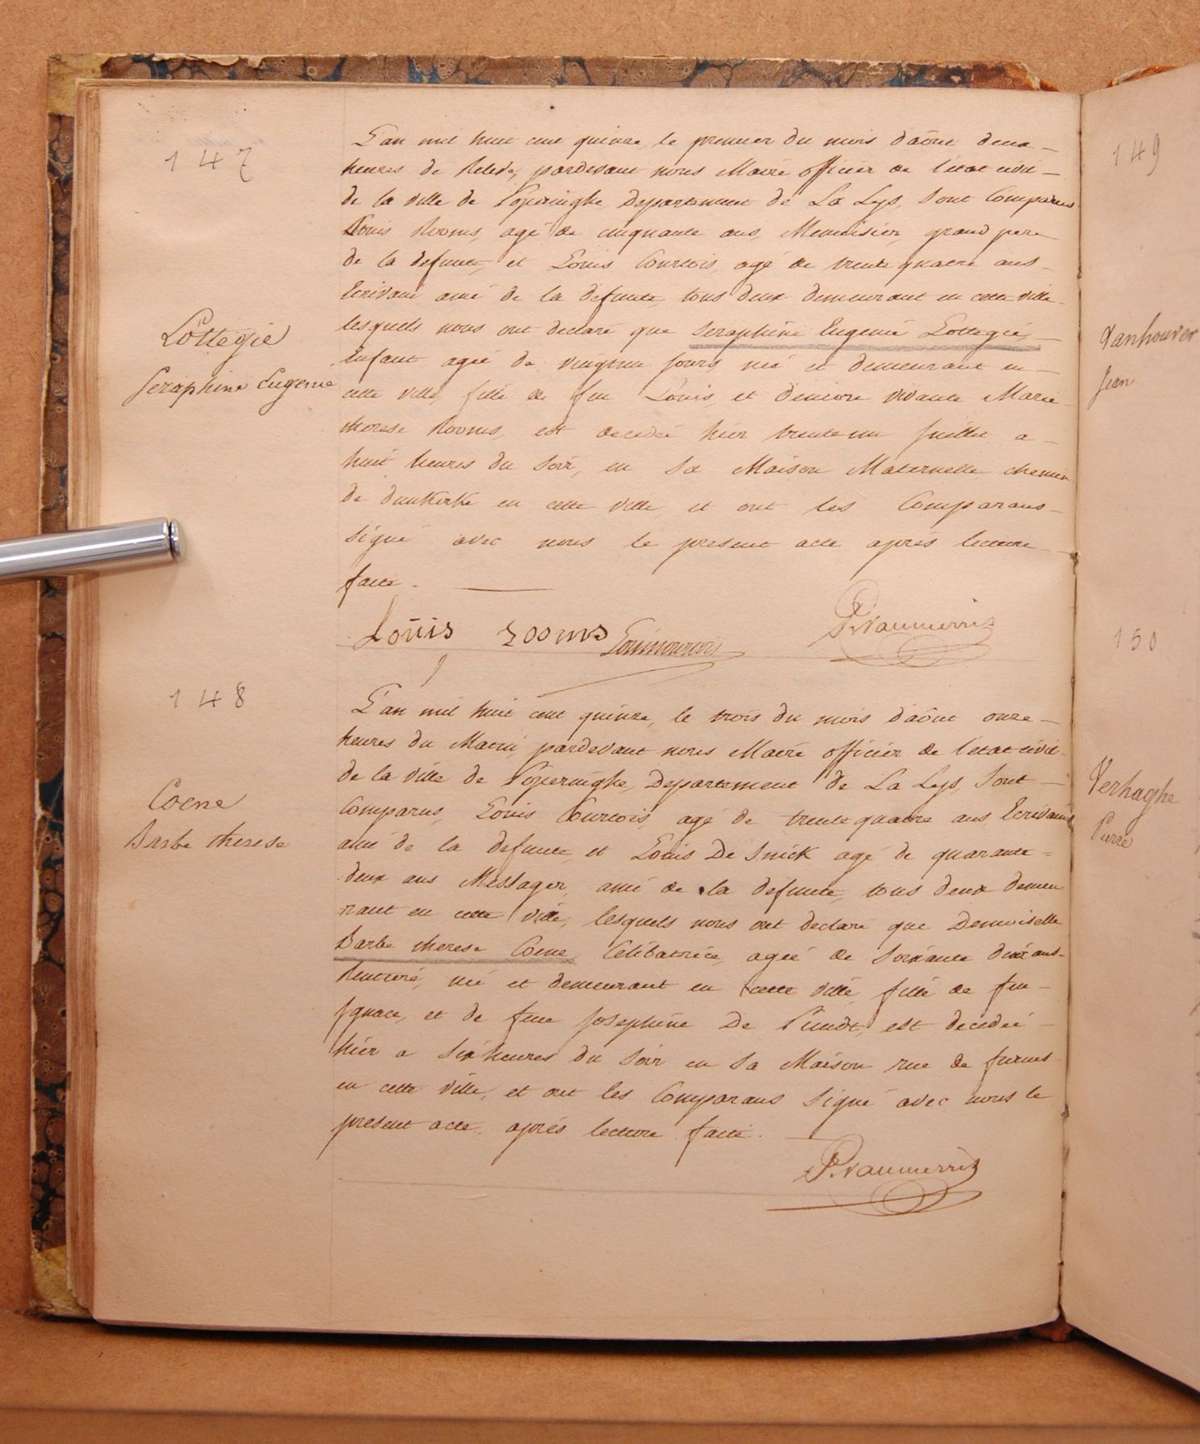 147
L'an mil huit cent quinze, le premier du mois d'aôut deux
heures de Relevée, pardevant nous Maire officier de l'état civil
de la ville de Poperinghe Departement de La Lys, Sont Comparus
Louis Rooms, agé de cinquante ans, Menuisier, grand pere
de la defunte, et Louis Courtois, agé de trente quatre ans
Ecrivain amé de la defunte tous deux demeurant en cette ville
lesquels nous ont declaré que Seraphine Eugenié Lottegié
Lottegie
Seraphine Eugenie
Enfant ageé de jours neé et demeurant en
cette ville, fille de feu Louis, et d'encore vivante Marie
therese Rooms, est decedeé hier trente un Juillet a
huit heures du Soir, en Sa Maison Maternelle chemin
de dunkerke en cette ville, et ont les Comparans
Signé avec nous le present acte aprés lecture
faite.
Louis Rooms P. Vanmerris
148
L'an mil huit cent quinze, le trois du mois d'aôut onze
heures du Matin, pardevant nous Maire officier de l'état civil
de la ville de Poperinghe, Departement de La Lys, Sont
Comparus, Louis Courtois, agé de trente quatre ans Ecrivain
amé de la defunte, et Louis De Snick agé de quarante
Coene
Barbe therese
deux ans Messager, amé de la defunte, tous deux demeu
rant en cette ville, lesquels nous ont declaré que Demoiselle
Barbe therese Coene Celibatrice, ageé de Soixante dix ans
Rentiere, neé et demeurant en cette ville, fille de feu
Ignace, et de feue Josephine De Puudt, est decedeé
hier a Six heures du Soir en Sa Maison rue de furnes
en cette ville, et ont les Comparans Signé avec nous le
present acte, aprés lecture faite.
P. Vanmerris
149
Vanhouver
Jean
150
Verhaghe
Pierre